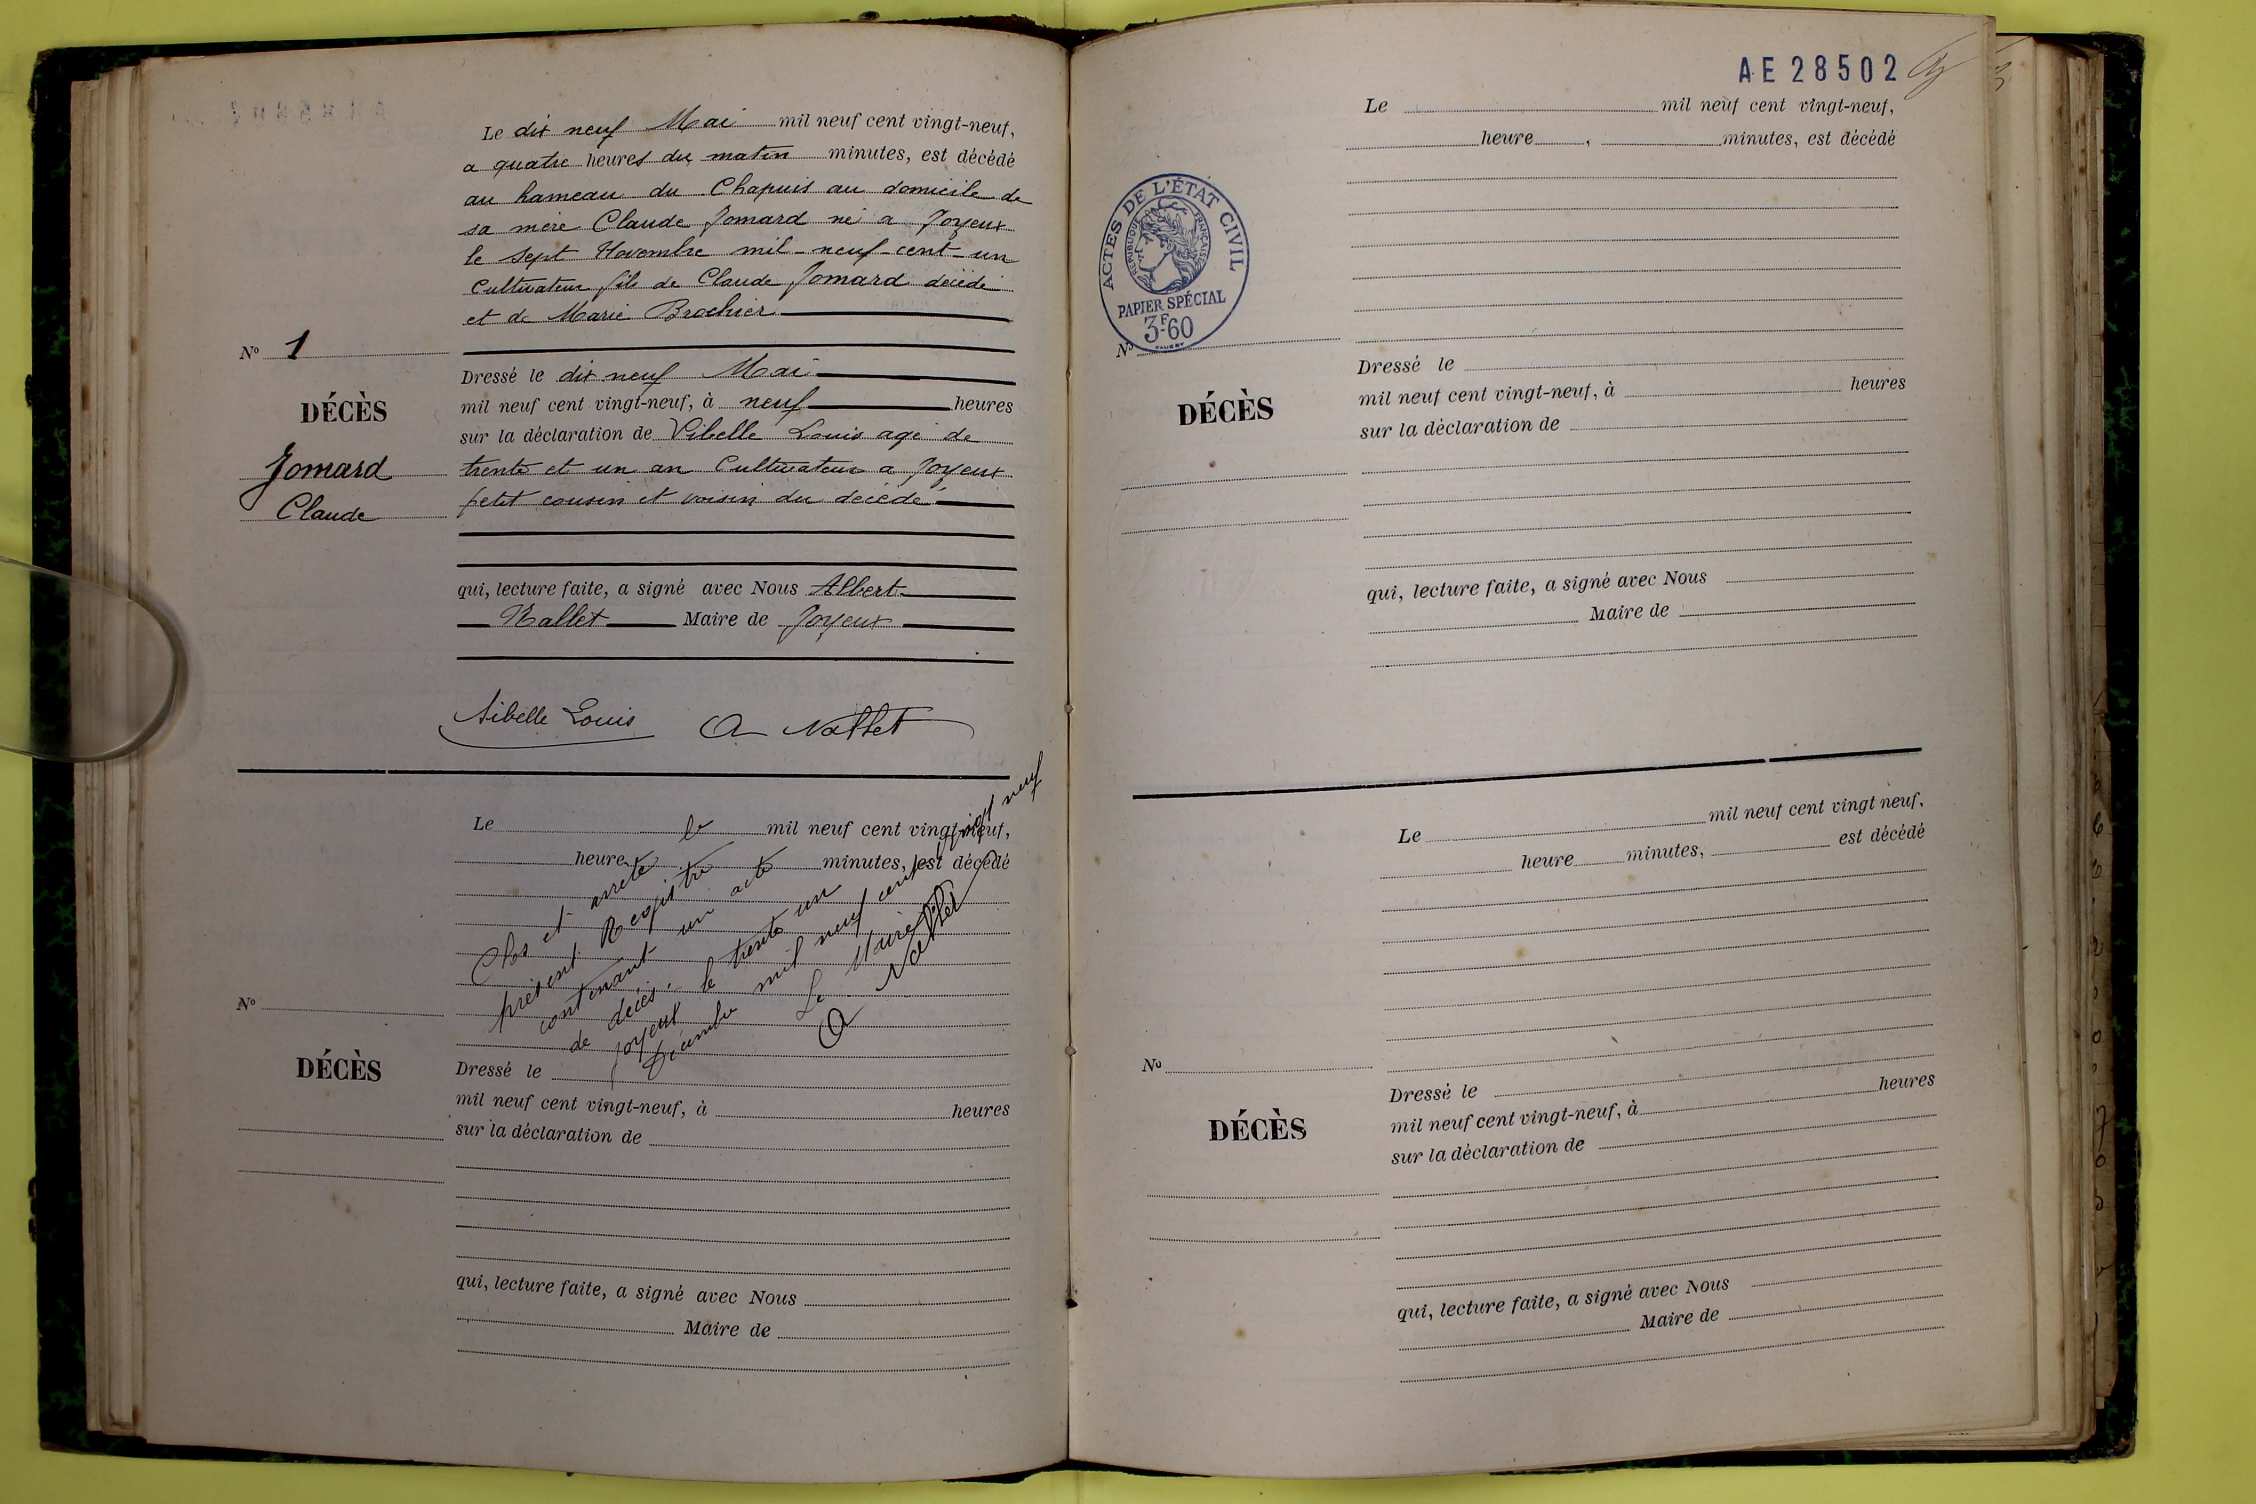 Le dix neuf Mai mil neuf cent vingt-neuf,
a quatre heures du matin minutes, est décédé
au hameau du Chapuis au domicile de
sa mère Claude Jomard né a Joyeux
le sept Novembre mil-neuf-cent-un
Cultivateur fils de Claude Jomard décédé
et de Marie Brochier
No 1
DÉCÈS
Jomard
Claude
Dressé le dix neuf Mai
mil neuf cent vingt-neuf, à neuf heures
sur la déclaration de Vibelle Louis agé de
trente et un an Cultivateur a Joyeux
petit cousin et voisin du décédé
qui, lecture faite, a signé avec Nous Albert
Nallet Maire de Joyeux
Louis A Nallet
Le mil neuf cent vingt-neuf,
heure minutes, est décédé
Clos et arreté le
présent Registre
contenant un acte
de décès.
Joyeux le trente un
Décembre mil neuf cent vingt neuf
Le Maire
A Nallet
No
DÉCÈS
Dressé le
mil neuf cent vingt-neuf, à heures
sur la déclaration de
qui, lecture faite, a signé avec Nous
Maire de
AE 28502
Le mil neuf cent vingt-neuf,
heure , minutes, est décédé
ACTES DE L'ÉTAT CIVIL
RÉPUBLIQUE FRANÇAISE
PAPIER SPÉCIAL
3F60
No
DÉCÈS
Dressé le
mil neuf cent vingt-neuf, à heures
sur la déclaration de
qui, lecture faite, a signé avec Nous
Maire de
Le mil neuf cent vingt neuf,
heure minutes, est décédé
No
DÉCÈS
Dressé le
mil neuf cent vingt-neuf, à heures
sur la déclaration de
qui, lecture faite, a signé avec Nous
Maire de